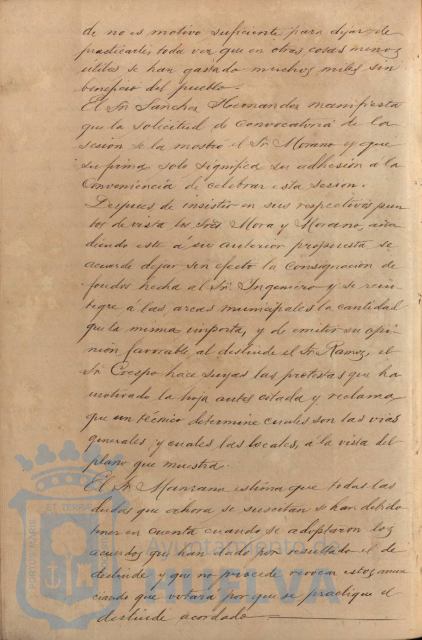 de no es motivo suficiente para dejar de
practicarle, toda vez que en otras cosas menos
útiles se han gastado muchos miles sin
beneficio del pueblo.
El Sr. Sánchez Hernandez manifiesta
que la solicitud de convocatoria de la
sesión se la mostró el Sr. Morano y que
su firma solo significa su adhesión a la
conveniencia de celebrar esta sesion.
Despues de insistir en sus respectivos pun
tos de vista los Sres. Mora y Morano, aña
diendo este á su anterior propuesta se
acuerde dejar sin efecto la consignacion de
fondos hecha al Sr. Ingeniero y se rein
tegre á las arcas municipales la cantidad
que la misma importa, y de emitir su opi
nión favorable al deslinde el Sr. Ramos, el
Sr. Crespo hace suyas las protestas que ha
motivado la hoja antes citada y reclama
que un técnico determine cuales son las vias
generales y cuales las locales, á la vista del
plano que muestra.
El Sr. Manzano estima que todas las
dudas que ahora se suscitan se han debido
tener en cuenta cuando se adoptaron los
acuerdos que han dado por resultado el de
deslinde y que no procede revocar estos anun
ciando que votará por que se practique el
deslinde acordado
PORTUS MARIS ET TERRAE
Ayuntamiento de
HUELVA